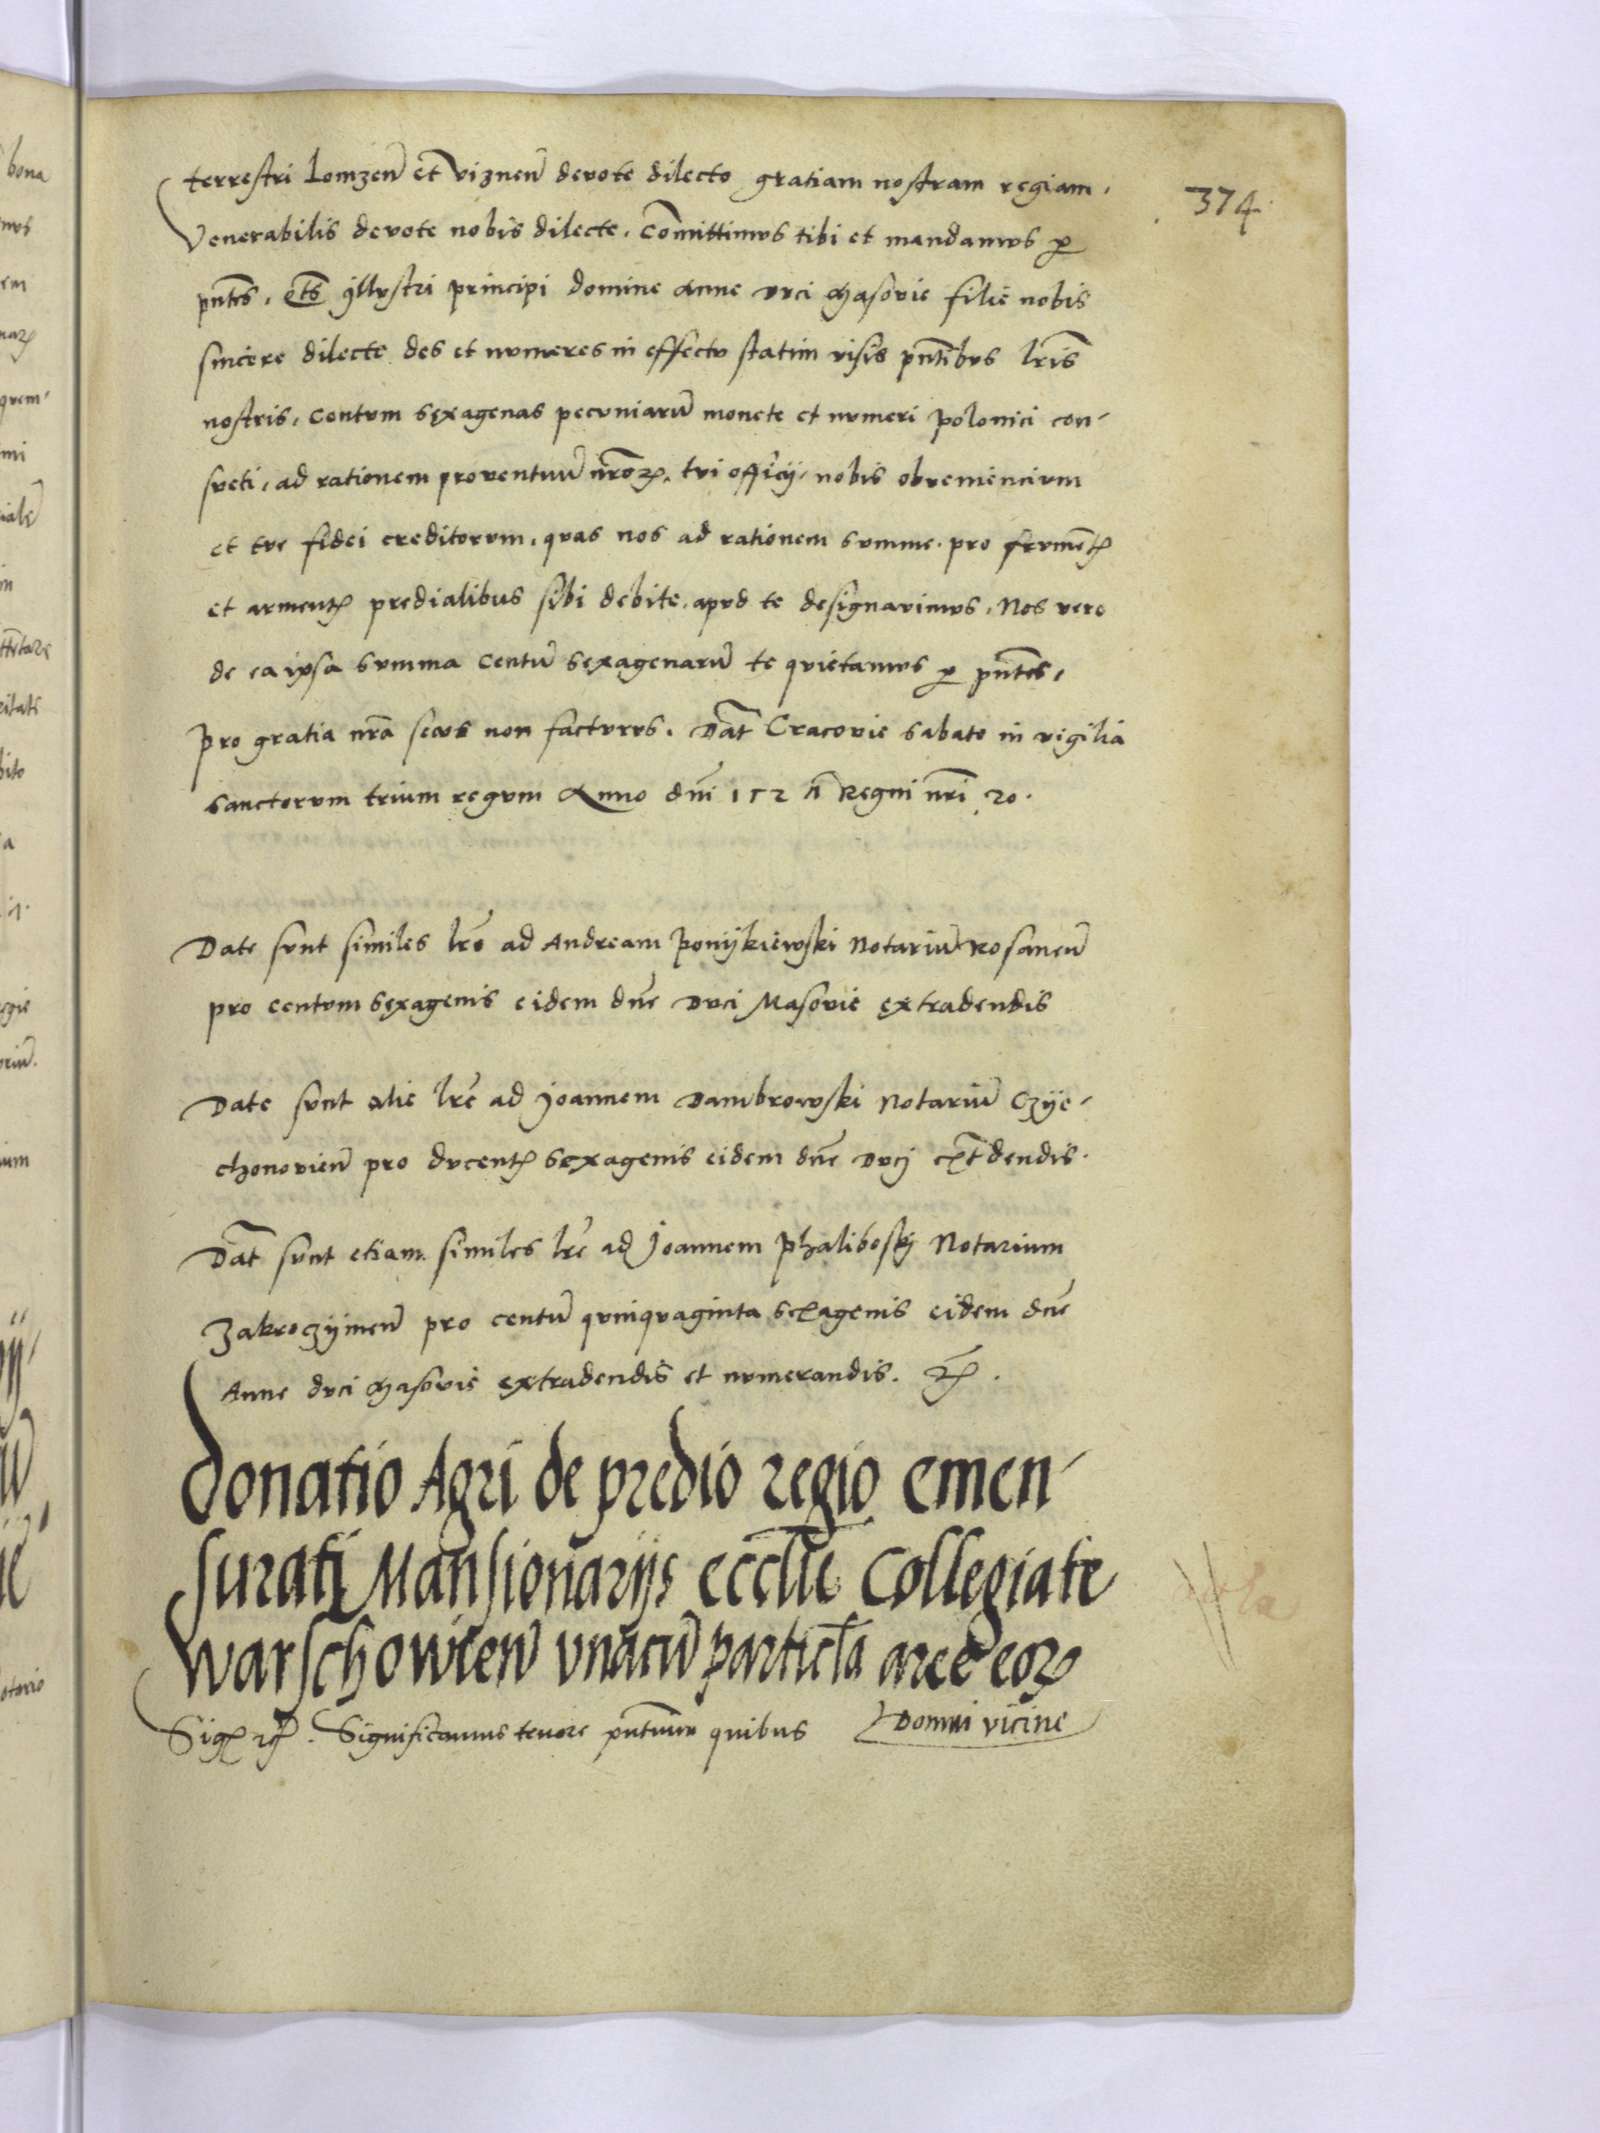 374
terrestri Lomzen̄ et Viznen̄ devote dilecto gratiam nostram regiam.
Venerabilis devote nobis dilecte. Com̄ittimus tibi et mandamus p
pn̄tes. illustri principi domine Anne Duci Masovie filie nobis
sincere dilecte des et numeres in effectu statim visis pn̄tibus lr̄is
nostris, centum sexagenas pecuniarū monete et numeri polonici con-
sueti, ad rationem proventuū nr̄oꝝ, tui officij, nobis obveniencium
et tue fidei creditorum, quas nos ad rationem summe pro frumentꝭ
et armentꝭ predialibus sibi debite, apud te designavimus, Nos vero
de ea ipsa summa centū sexagenarū te quietamus p pn̄tes,
pro gratia nr̄a secus non facturus. Dat̄ Cracovie sabato in vigilia
sanctorum trium regum Anno dn̄i 152 Regni nr̄i 20.
Date sunt similes lr̄e ad Andream Ponijkiewski Notariū Rosanen̄
pro centum sexagenis eidem dn̄e Duci Masovie extradendis
Date sunt alie lr̄e ad Joannem Dambrowski Notariū Czije-
chonovien̄ pro ducentꝭ sexagenis eidem dn̄e Ducj exͭdendis.
Dat̄ sunt etiam similes lr̄e ad Joannem Phaliboskj Notarium
Zakroczijmen̄ pro centū quinquaginta sexagenis eidem dn̄e
Anne duci Masovie extradendis et numerandis. ꝛꝭ.
Donatio Agri de predio regio emen-
surati Mansionarijs eccl̄ie Collegiate
Warschowien̄ unacū particl̄a aree eoꝝ
Domui vicine
Sigꝭ ꝛꝭ. Significamus tenore pn̄tium quibus